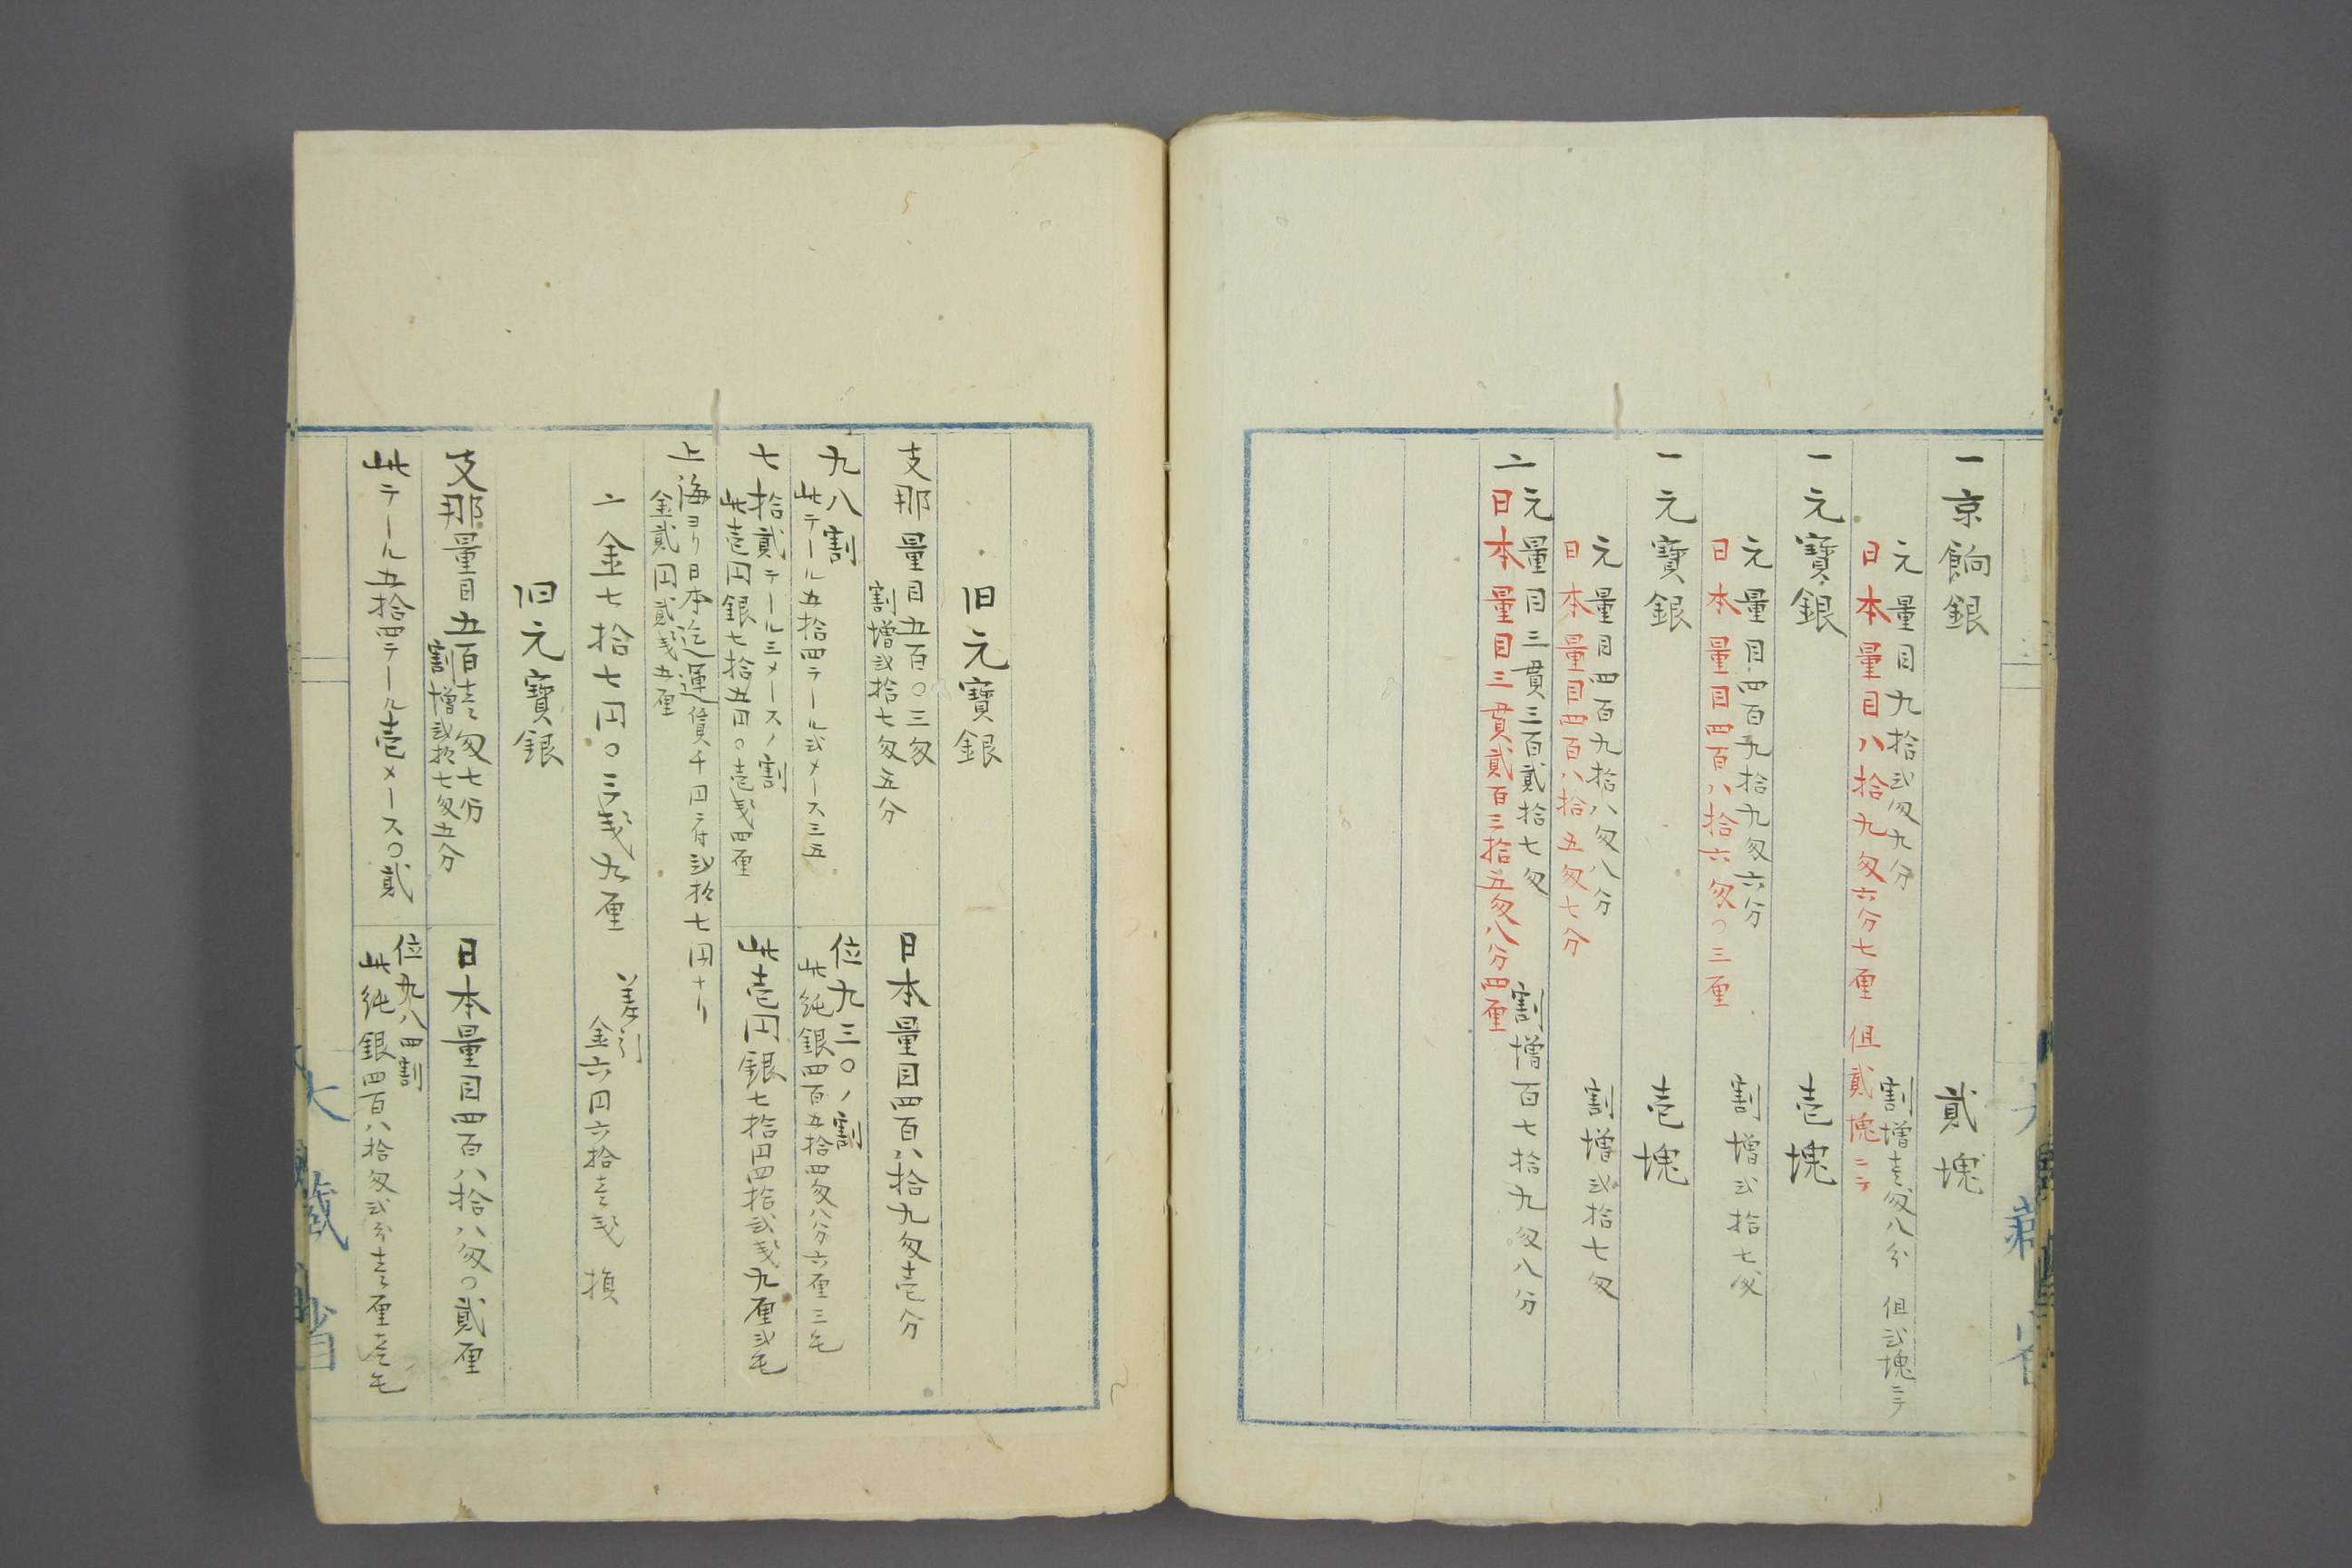 一京餉銀　貳塊
元量目九拾弐匁九分　割増壱匁八分　但弐塊ニテ
日本量目八拾九匁六分七厘　但貳塊ニテ
一元寶銀　壱塊
元量目四百九拾九匁六分　割増弐拾七匁
日本量目四百八拾六匁〇三厘
一元寶銀　壱塊
元量目四百九拾八匁八分　割増弐拾七匁
日本量目四百八拾五匁七分
〆元量目三貫三百貳拾七匁　割増百七拾九匁八分
日本量目三貫貳百三拾五匁八分四厘
旧元寶銀
支那量目五百〇三匁
割増弐拾七匁五分
日本量目四百八拾九匁壱分
九八割
此テール五拾四テール弐メース三五
位九三〇ノ割
此純銀四百五拾四匁八分六厘三毛
七拾貳テール三メースノ割
此壱円銀七拾五円〇壱戔四厘
此壱円銀七拾四円四拾弐戔九厘弐毛
上海ヨリ日本迄運賃千円ニ付弐拾七円ナリ
金貳円貳戔五厘
〆金七拾七円〇三戔九厘
差引
金六円六拾壱戔　損
旧元寶銀
支那量目五百壱匁七分
割増弐拾七匁五分
日本量目四百八拾八匁〇貳厘
此テール五拾四テール壱メース〇貳
位九八四割
此純銀四百八拾匁弐分壱厘壱毛
大藏省